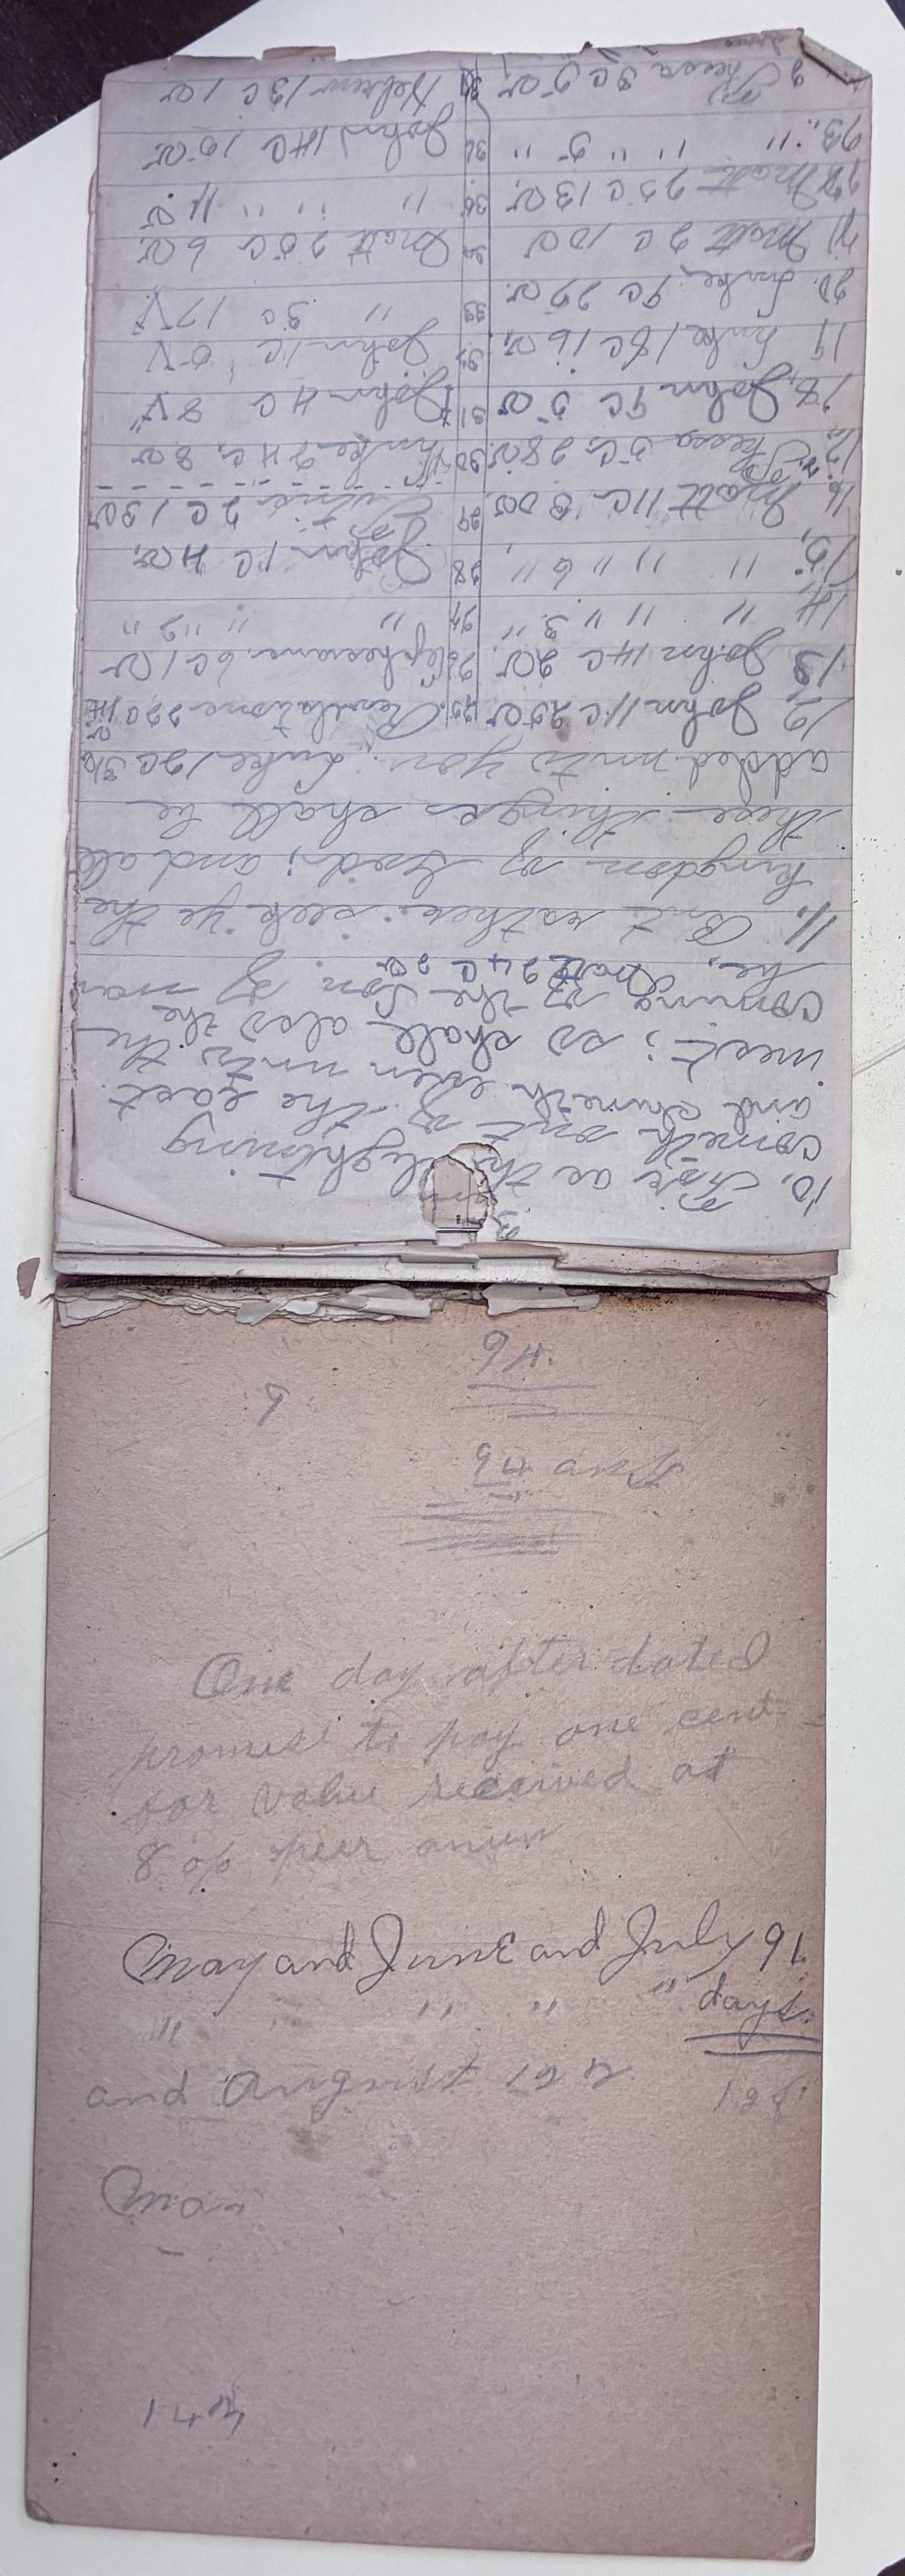 10. For as the lightning
cometh out of the east
and shineth even unto the
west; so shall also the
coming of the Son of man
be, Matt 24C 2
11. But rather seek ye the
kingdom of God; and all
these things shall be
added unto you. Luke 12C 31v
12, John 11C 25v
13 John 14C 2v.
14 " " " 3 "
15, " " " 6 " ,
16, Matt 11C
C 28v.
18, John 9C 5v
19 Luke 18C 16v,
20. Luke, 9C 22v.
21 Matt 2C 10v
Matt 25C 13v.
23, " " " 5 "
3C 5v
25. Revelations 22C 14v
26 Ephesians, 6C 1v
27 " " " 2 "
28 John 1C 4v,
29 2C 13v
30 Luke 24C, 8v
31 John 4C 8V
32 John 1C 5V
33 " 3C 17V.
34 Matt 25C 6v,
35 " " " 11 v
36 John 14C 15v
Hebrew 13C 1v
One day after dated
promise to pay one cent
for value received at
8 % peer annum
May and June and July 91.
" " " " days.
and August